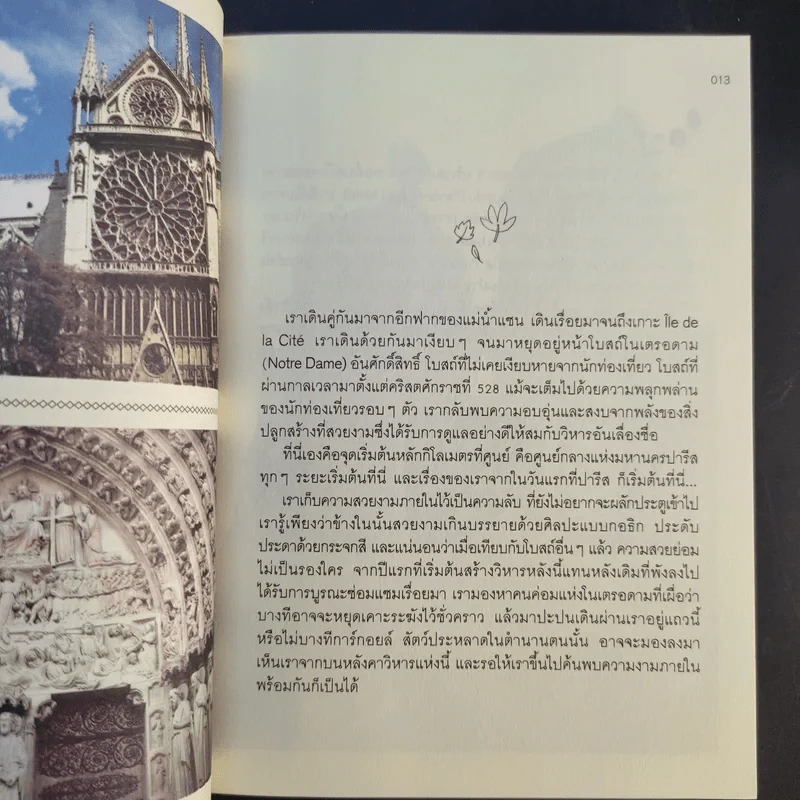 013
เราเดินคู่กันมาจากอีกฟากของแม่น้ำแซน เดินเรื่อยมาจนถึงเกาะ Île de
la Cité เราเดินด้วยกันมาเงียบๆ จนมาหยุดอยู่หน้าโบสถ์ในเตรอดาม
(Notre Dame) อันศักดิ์สิทธิ์ โบสถ์ที่ไม่เคยเงียบหายจากนักท่องเที่ยว โบสถ์ที่
ผ่านกาลเวลามาตั้งแต่คริสตศักราชที่ 528 แม้จะเต็มไปด้วยความพลุกพล่าน
ของนักท่องเที่ยวรอบๆ ตัว เรากลับพบความอบอุ่นและสงบจากพลังของสิ่ง
ปลูกสร้างที่สวยงามซึ่งได้รับการดูแลอย่างดีให้สมกับวิหารอันเลื่องชื่อ
ที่นี่เองคือจุดเริ่มต้นหลักกิโลเมตรที่ศูนย์ คือศูนย์กลางแห่งมหานครปารีส
ทุกๆ ระยะเริ่มต้นที่นี่ และเรื่องของเราจากในวันแรกที่ปารีส ก็เริ่มต้นที่นี่...
เราเก็บความสวยงามภายในไว้เป็นความลับ ที่ยังไม่อยากจะผลักประตูเข้าไป
เรารู้เพียงว่าข้างในนั้นสวยงามเกินบรรยายด้วยศิลปะแบบกอธิก ประดับ
ประดาด้วยกระจกสี และแน่นอนว่าเมื่อเทียบกับโบสถ์อื่นๆ แล้ว ความสวยย่อม
ไม่เป็นรองใคร จากปีแรกที่เริ่มต้นสร้างวิหารหลังนี้แทนหลังเดิมที่พังลงไป
ได้รับการบูรณะซ่อมแซมเรื่อยมา เรามองหาคนค่อมแห่งในเตรอดามที่เผื่อว่า
บางทีอาจจะหยุดเคาะระฆังไว้ชั่วคราว แล้วมาปะปนเดินผ่านเราอยู่แถวนี้
หรือไม่บางทีการ์กอยล์ สัตว์ประหลาดในตำนานตนนั้น อาจจะมองลงมา
เห็นเราจากบนหลังคาวิหารแห่งนี้ และรอให้เราขึ้นไปค้นพบความงามภายใน
พร้อมกันก็เป็นได้